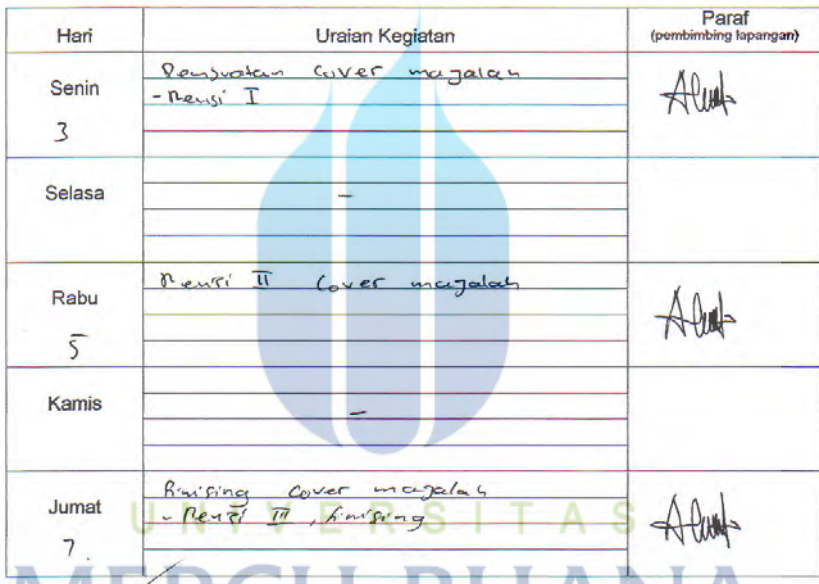 Hari Uraian Kegiatan Paraf
(pembimbing lapangan)
Senin
3
Pembuatan cover majalah
- Revisi I
Selasa
-
Rabu
5
Revisi II cover majalah
Kamis
-
Jumat
7.
finising cover majalah
- Revisi III, finising
UNIVERSITAS
MERCU BUANA